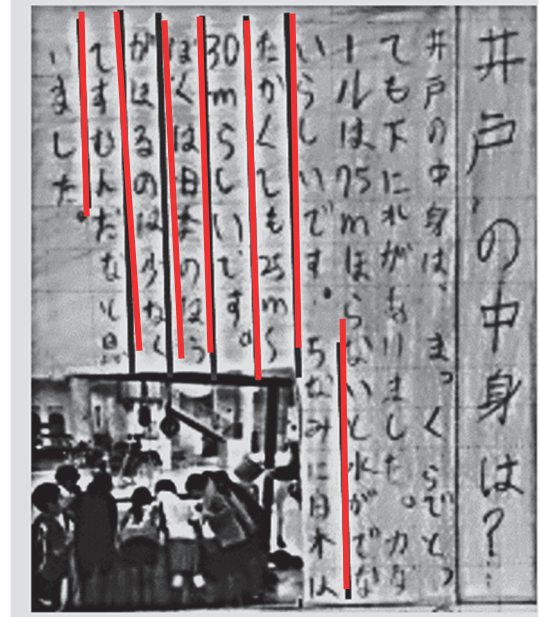 井戸の中身は?
井戸の中身は、まっくらでとっ
ても下に水がありました。カな
ールは75mほらないと水がでな
いらしいです。ちなみに日本は
たかくても25m〜
30mらしいです。
ぼくは日本のほう
がほるのは少なく
てすむんだなと思
いました。